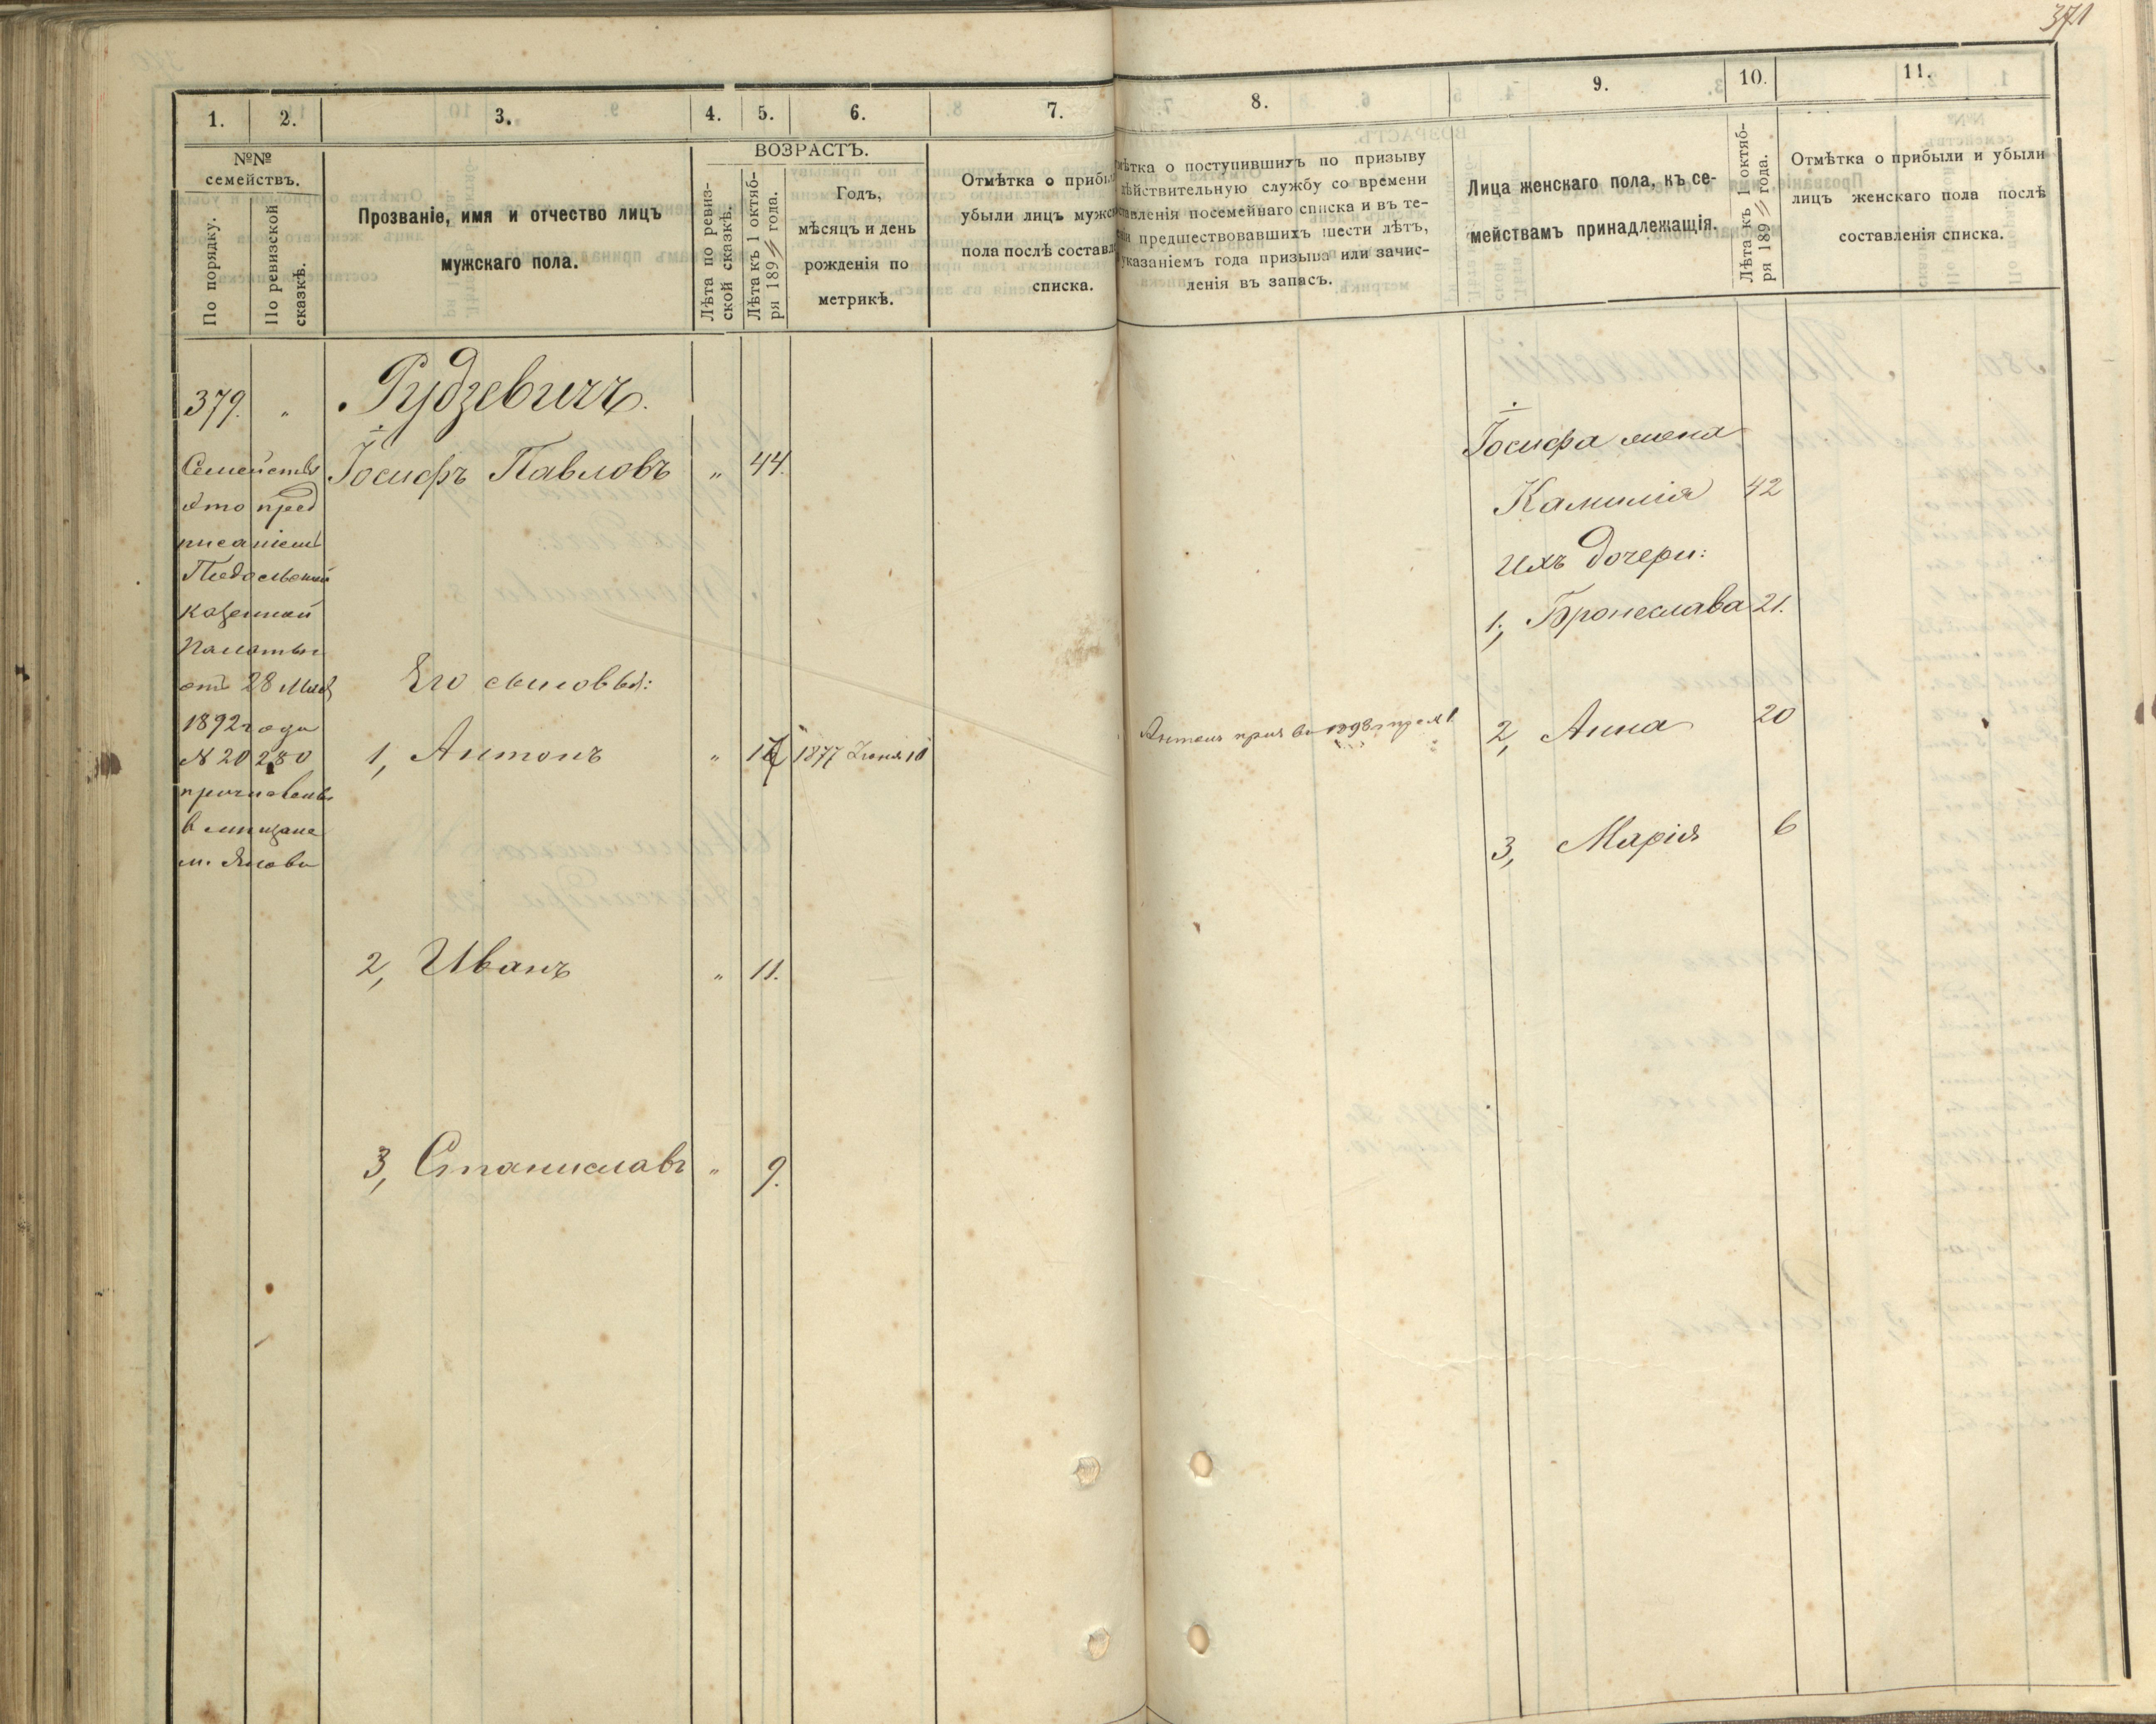 371
1. 2. 3. 4. 5. 6. 7. 8. 9. 10. 11.
№№ семействъ.
По порядку.
По ревизской сказкѣ.
Прозваніе, имя и отчество лицъ
мужскаго пола.
ВОЗРАСТЪ.
Лѣта по ревиз-
ской сказкѣ.
Лѣта къ 1 октяб-
ря 189 года.
Годъ,
мѣсяцъ и день
рожденія по
метрикѣ.
Отмѣтка о прибы
убыли лицъ мужс
пола послѣ составл
списка.
мѣтка о поступившихъ по призыву
дѣйствительную службу со времени
ставленія посемейнаго списка и въ те-
ніи предшествовавшихъ шести лѣтъ,
указаніемъ года призыва или зачис-
ленія въ запасъ.
Лица женскаго пола, къ се-
мействамъ принадлежащія.
Лѣта къ 1 октяб-
ря 189 года.
Отмѣтка о прибыли и убыли
лицъ женскаго пола послѣ
составленія списка.
379. „ Рудзевичъ.
Семейство
это пред
писаніемъ
Подольской
Казенной
Палаты
отъ 28 Мая
1892 года
№ 20280
причислено
в мищане
м. Янова
Іосифъ Павловъ „ 44.
Его сыновья:
1, Антонъ „ 1877 Іюня 10
2, Иванъ „ 11.
3, Станиславъ „ 9.
Антонъ 1898
Іосифа жена
Камилія 42
ихъ дочери:
1, Бронеслава 21.
2, Анна 20
3, Марія 6